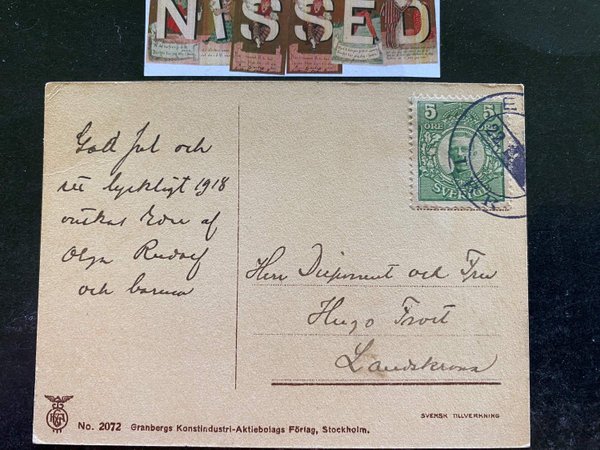 NISSED
God Jul och
ett lyckligt 1918
önskas Eder af
Olga Rudolf
och barnen
5 5
ÖRE ÖRE
SVERIGE
Herr Disponent och Fru
Hugo Tvost
Landskrona
No. 2072 Granbergs Konstindustri-Aktiebolags Förlag, Stockholm.
SVENSK TILLVERKNING